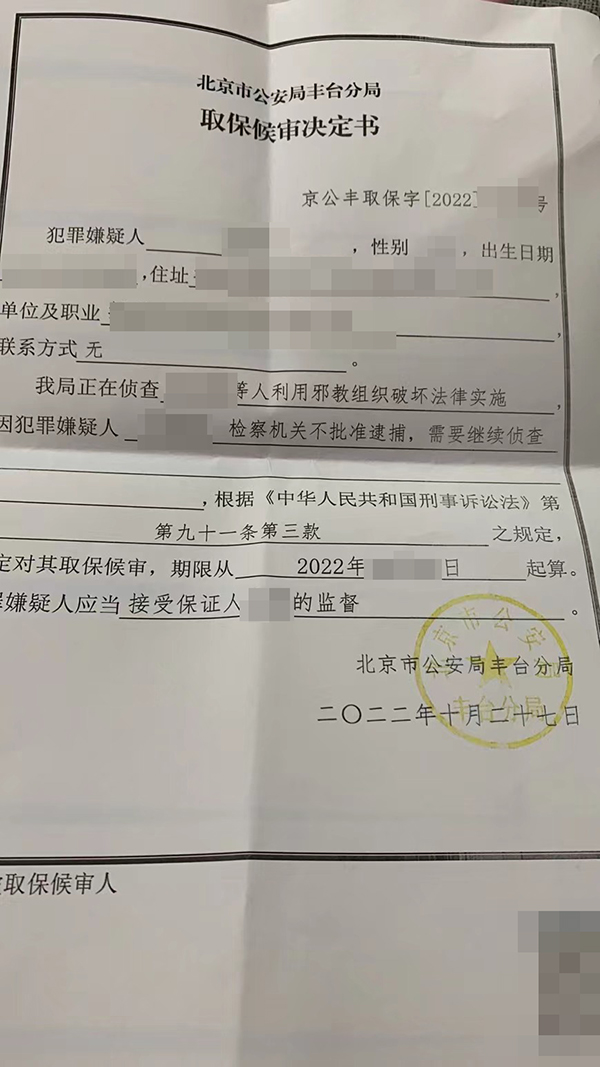 北京市公安局丰台分局
取保候审决定书
京公丰取保字[2022] 号
犯罪嫌疑人 ，性别 ，出生日期
，住址 ，
单位及职业 ，
联系方式 无 。
我局正在侦查 等人利用邪教组织破坏法律实施 ，
因犯罪嫌疑人 检察机关不批准逮捕，需要继续侦查
，根据《中华人民共和国刑事诉讼法》第
第九十一条第三款 之规定，
定对其取保候审，期限从 2022年 日 起算。
罪嫌疑人应当 接受保证人 的监督 。
北京市公安局丰台分局
二〇二二年十月二十七日
北京市公安局
丰台分局
取保候审人